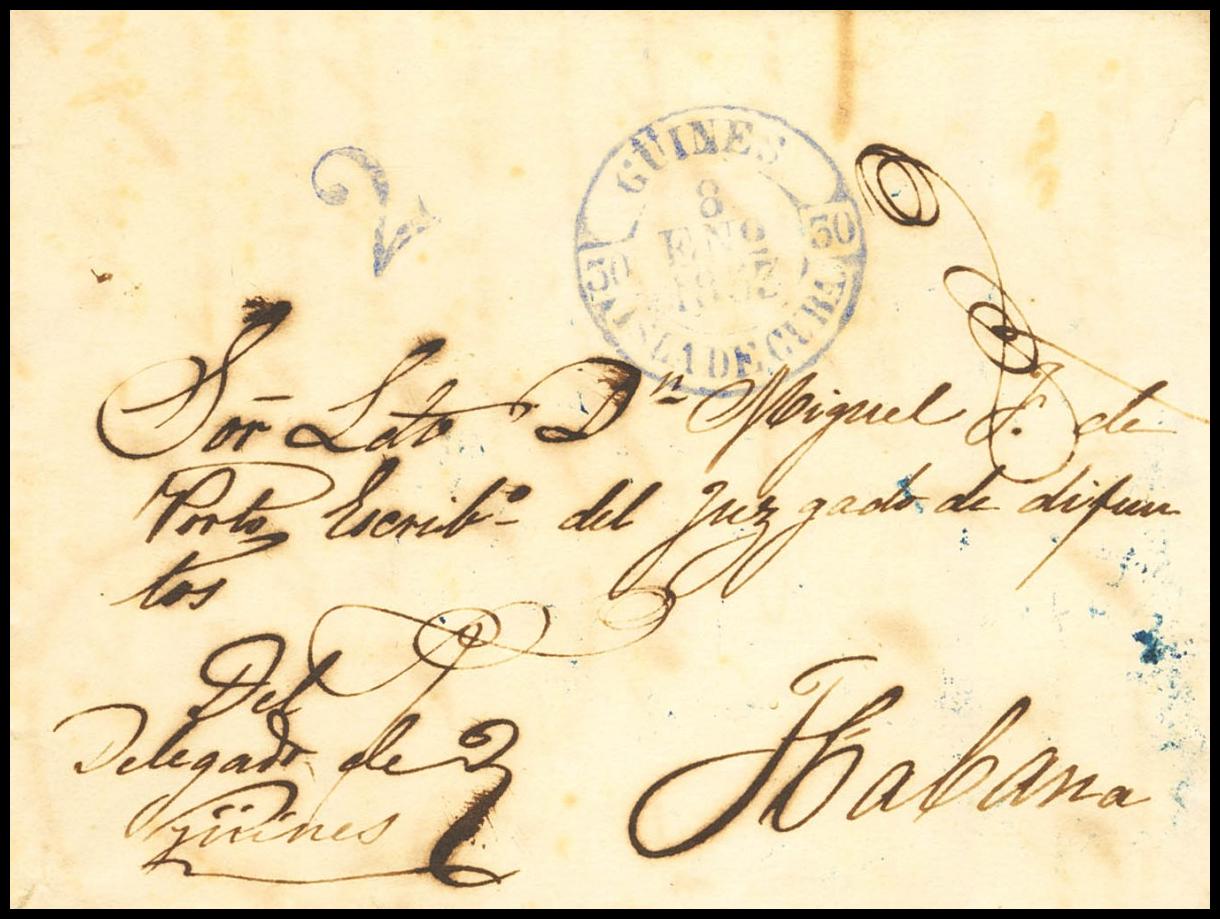 2
GÜINES
8
ENO
30 30
ISLA DE CUBA
Sor Ldo Dn Miguel J. de
Porto Escribº del Juzgado de difun
tos
Del
Delegado de
Güines
Habana